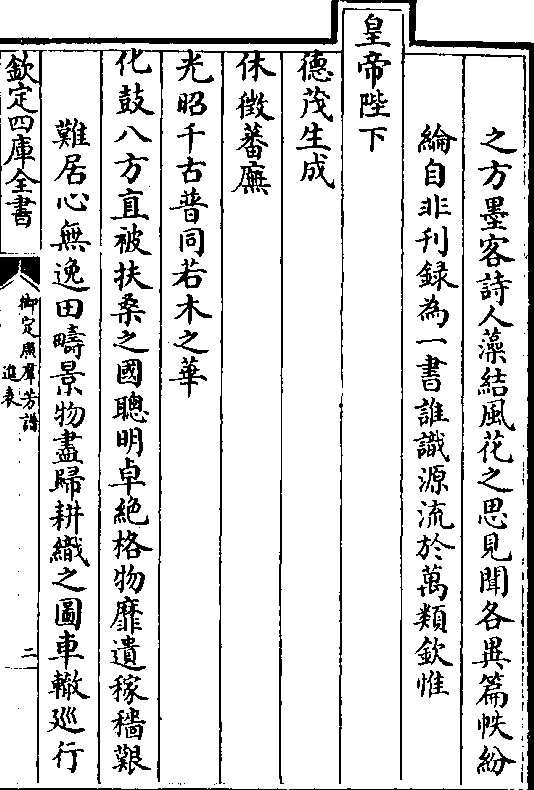 之方墨客詩人藻結風花之思見聞各異篇帙紛
綸自非刊録為一書誰識源流於萬類欽惟
皇帝陛下
德茂生成
休徴蕃廡
光昭千古普同若木之華
化鼓八方直被扶桑之國聰明卓絶格物靡遺稼穡艱
難居心無逸田疇景物盡歸耕織之圖車轍廵行
欽定四庫全書
御定廣羣芳譜
進表
二